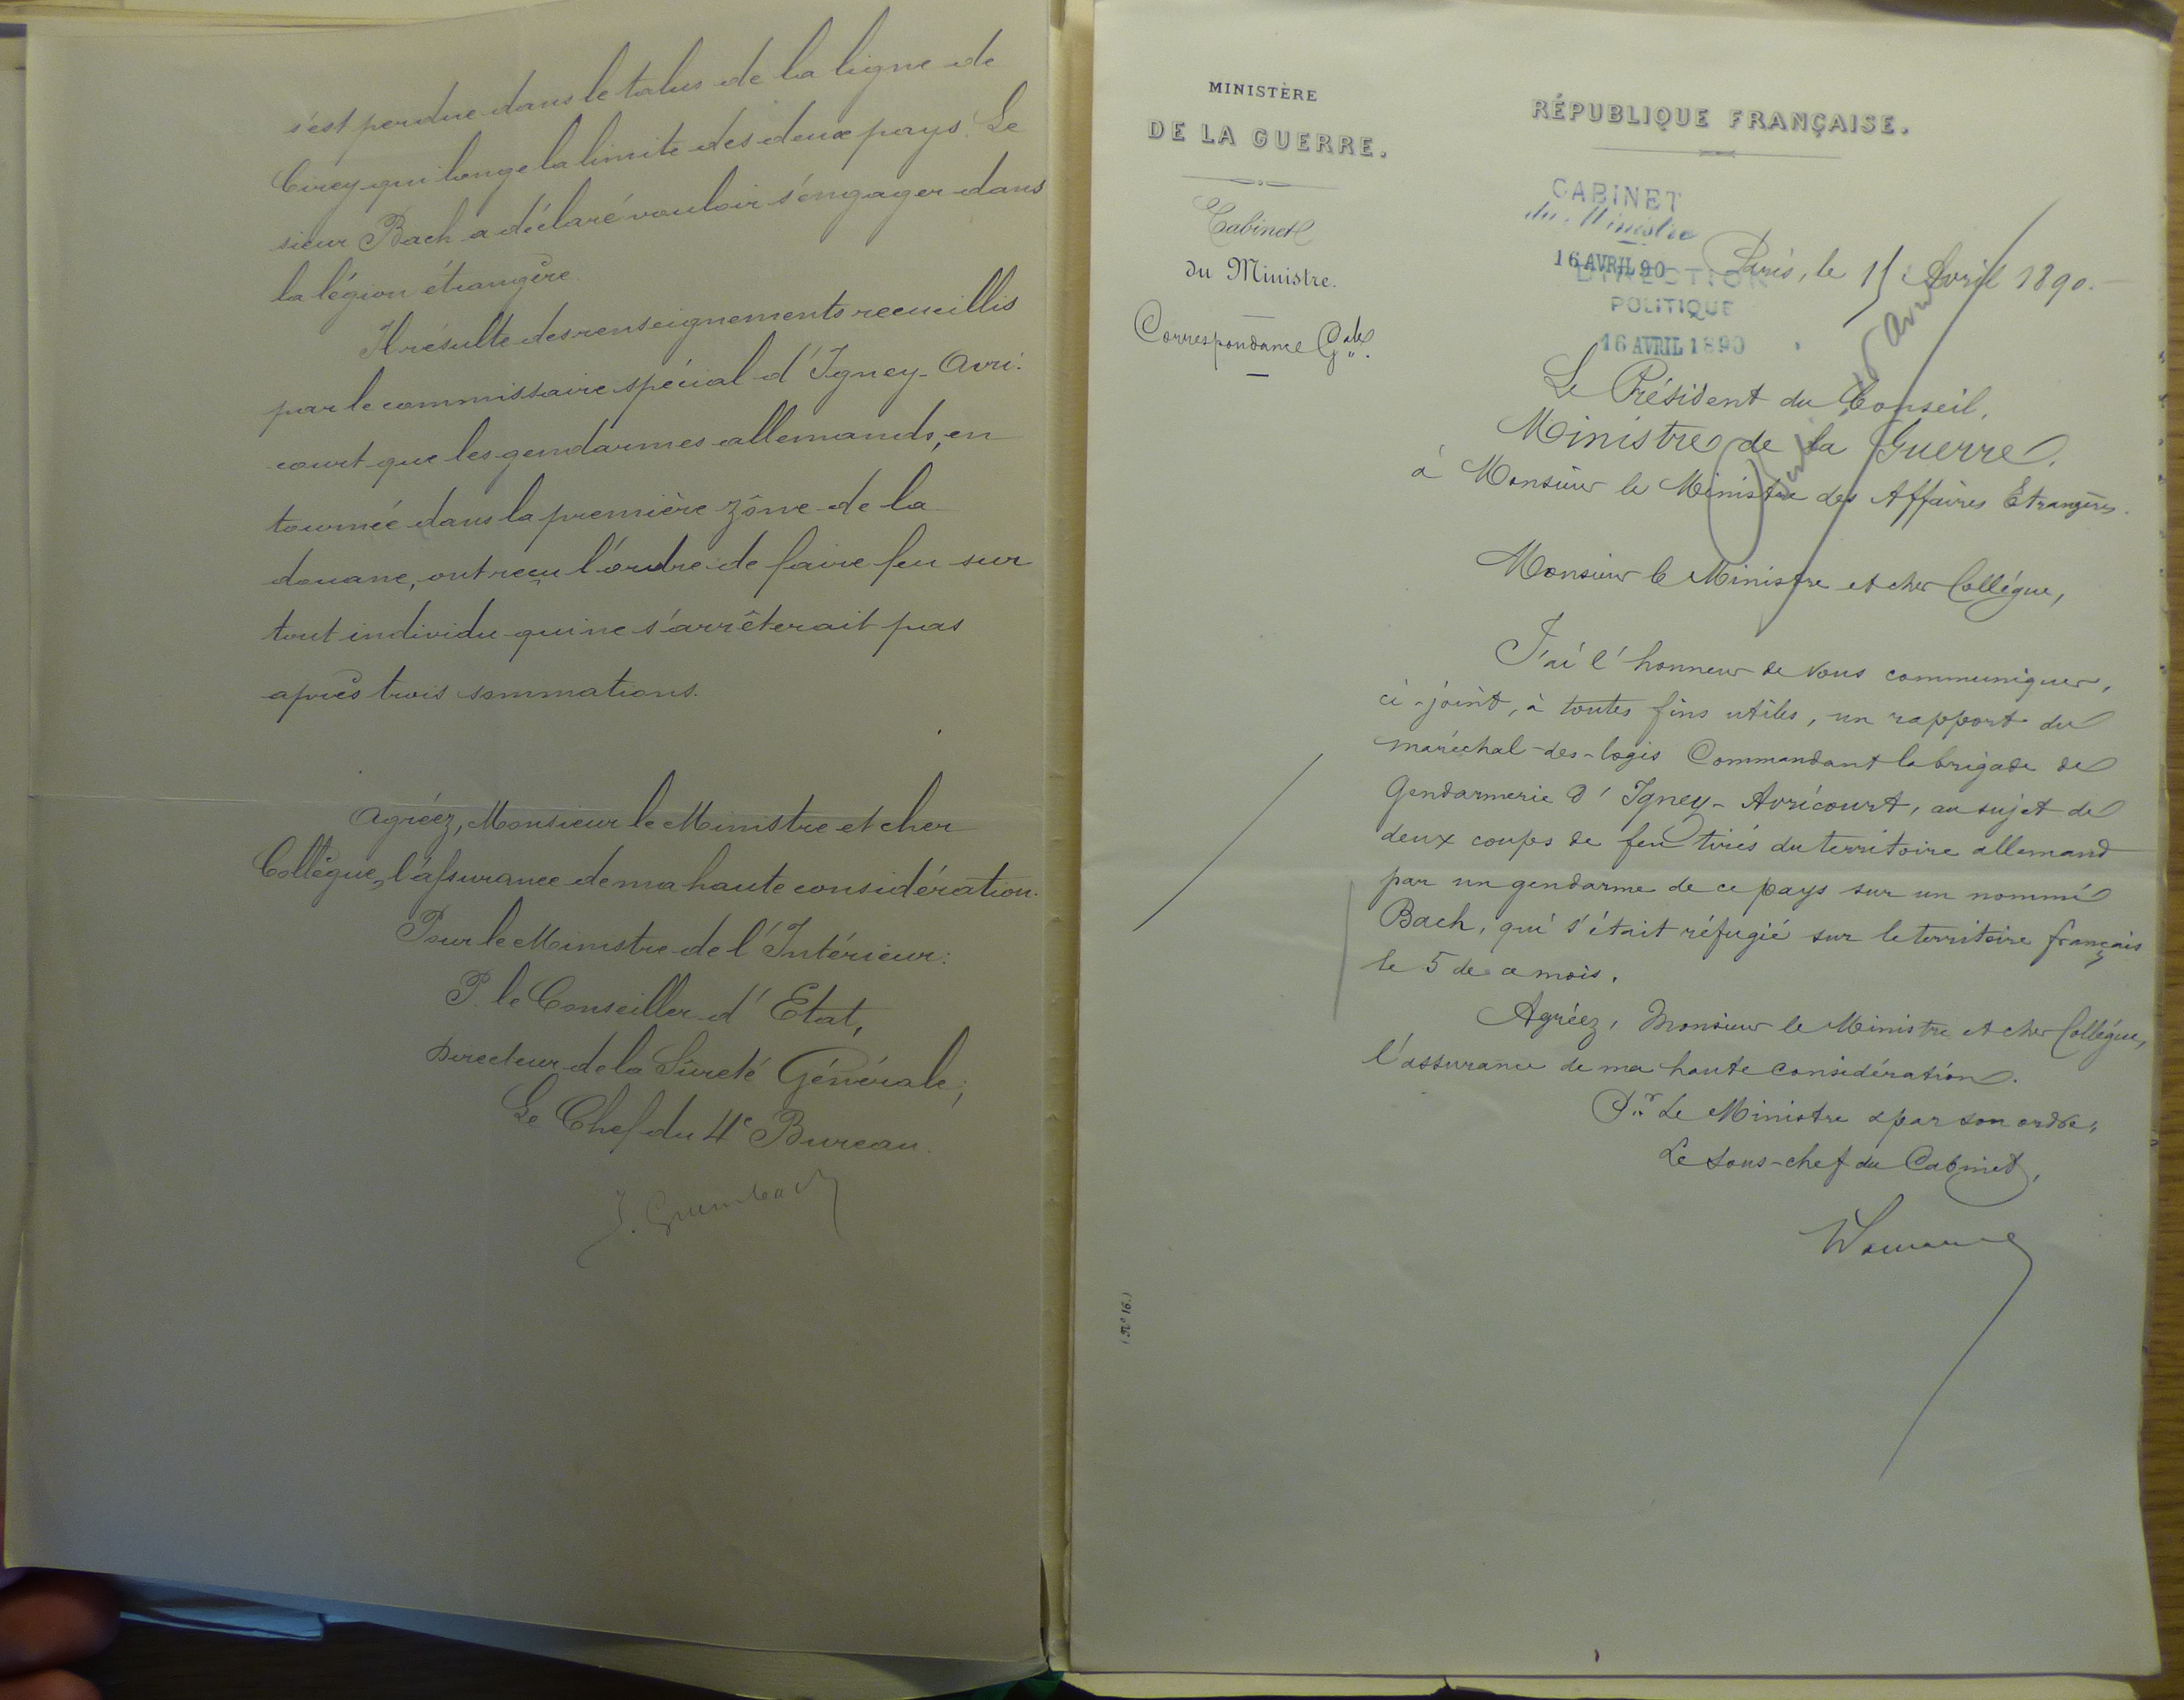 s'est perdue dans le talus de la ligne de
Cirey qui longe la limite des deux pays. Le
sieur Bach a déclaré vouloir s'engager dans
la légion étrangère.
Il résulte des renseignements recueillis
par le commissaire spécial d'Igney-Avri-
court que les gendarmes allemands, en
tournée dans la première zône de la
douane, ont reçu l'ordre de faire feu sur
tout individu qui ne s'arrêterait pas
après trois sommations.
Agréez, Monsieur le Ministre et cher
Collègue, l'assurance de ma haute considération.
Pour le Ministre de l'Intérieur:
P. le Conseiller d'Etat,
Directeur de la Sûreté Générale;
Le Chef du 4e Bureau.
J. Grumbach
MINISTÈRE
DE LA GUERRE.
Cabinet
du Ministre.
Correspondance Gale.
(No 16.)
RÉPUBLIQUE FRANÇAISE.
CABINET
du Ministre
16 AVRIL 90
DIRECTION
POLITIQUE
16 AVRIL 1890
Paris, le 15 Avril 1890.
Le Président du Conseil,
Ministre de la Guerre,
à Monsieur le Ministre des Affaires Etrangères.
Monsieur le Ministre et cher Collégue,
J'ai l'honneur de vous communiquer,
ci-joint, à toutes fins utiles, un rapport du
maréchal-des-logis Commandant la brigade de
Gendarmerie d'Igney-Avricourt, au sujet de
deux coups de feu tirés du territoire allemand
par un gendarme de ce pays sur un nommé
Bach, qui s'était réfugié sur le territoire français
le 5 de ce mois.
Agréez, Monsieur le Ministre et cher Collégue,
l'assurance de ma haute considération.
Pr. Le Ministre & par son ordre,
Le Sous-chef du Cabinet,